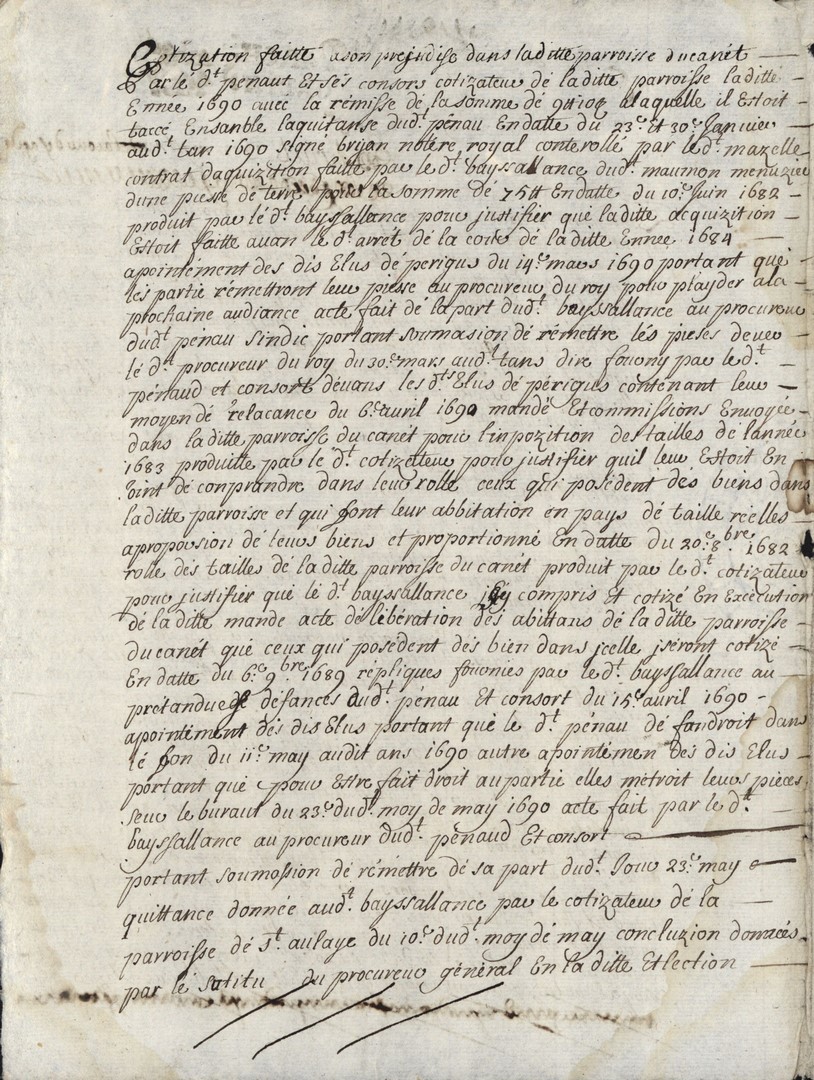 Cotization faitte a son prejudise dans laditte parroisse du canet —
Par lé d.t penaut Et sés consors cotizateur dé laditte parroisse laditte —
Ennee 1690 avec la rémisse dé la somme dé 9tt 10s a laquelle il Estoit —
taccé Ensanble laquitanse dud.t pénau En datte du 23.e et 30.e Janvier
aud.t tan 1690 signé brijan notere royal conterollé par le d.t mazelle
contrat daquizition faitte par le d.t bayssallance dud.t maumon menuzier
dune piesse dé terre pour la somme dé 75tt En datte du 10.e Juin 1682 —
produit par lé d.t bayssallance pour justifier qué laditte acquizition —
Estoit faitte avan le d.t arrét dé la corte dé laditte Ennee 1684 —
apointément des dis Elus dé perigus du 14.e mars 1690 portant qué
lés partie rémettront leur piesse au procureur du roy pour playder a la
prochaine audiance acte fait dé la part dud.t bayssallance au procureur
dud.t pénau sindic portant soumasion dé rémettre lés pieses dever
lé d.t procureur du roy du 30.e mars aud.t tans dire fourny par le d.t —
pénaud et consort dévans les d.ts Elus dé périgus contenant leur —
moyen dé rélacance du 6.e avril 1690 mandé Et commissions Envoyée —
dans laditte parroisse du canét pour l'inpozition des tailles dé lannée
1683 produitte par le d.t cotizateur pour justifier quil leur Estoit En
Joint dé conprandre dans leur rolle ceux qui posédent dés biens dans
laditte parroisse et qui font leur abbitation en pays dé taille réelles —
a proporsion dé leurs biens et proportionné En datte du 20.e 8.bre 1682
rolle dés tailles dé la ditte parroisse du canét produit par le d.t cotizateur
pour justifier qué lé d.t bayssallance jéy compris et cotizé En Exceecution
dé la ditte mande acte dé libération dés abittans dé la ditte parroisse —
du canét qué ceux qui posédent dés bien dans jcelle jséront cotizé —
En datte du 6.e 9.bre 1689 répliques fournies par le d.t bayssallance au —
prétandues défances dud.t pénau Et consort du 15.e avril 1690 —
apointément dés dis Elus portant qué le d.t pénau dé fandroit dans
lé fon du 11.e may audit ans 1690 autre apointémen dés dis Elus —
portant qué pour Estre fait droit au partie elles métroit leurs piéces
seur le buraut du 23.e dud.t moy de may 1690 acte fait par le d.t —
bayssallance au procureur dud.t pénaud Et consort —
portant soumossion dé rémettre dé sa part dud.t Jour 23.e may —
quittance donnée aud.t bayssallance par le cotizateur dé la —
parroisse dé s.t aulaye du 10.e dud.t moy dé may concluzion donnéés
par lé sutitu du procureur général En la ditte Etlection —